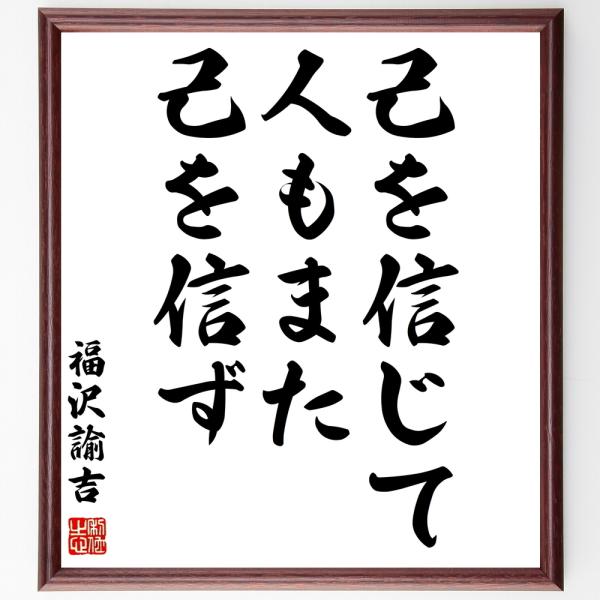 己を信じて
人もまた
己を信ず
福沢諭吉